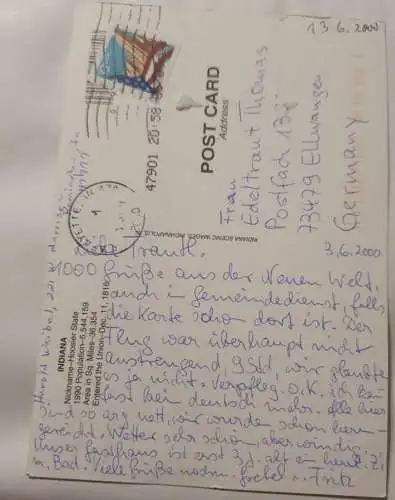 13.6.2000
POST CARD
Address
47901 20:58
Frau
Edeltraut Thomas
Postfach
73479 Ellwangen
Germany
INDIANA SCENIC IMAGES, INDIANAPOLIS
INDIANA
Nickname-Hoosier State
1990 Population-5,544,159
Area in Sq. Miles-36,354
Entered the Union-Dec. 11, 1816
3.6.2000
Liebe Trautl.
1000 Grüße aus der Neuen Welt,
auch in Gemeindedienst, falls
die Karte schon dort ist. Der
Flug war überhaupt nicht
anstrengend, 9 Std, wir glaubten
es ja nicht. Verpfleg. o.k. ich kann
fast kein deutsch mehr. Alle hier
sind so arg nett, wir wurden schon
Wetter sehr schön, aber windig.
Unser Gasthaus ist erst 3 J. alt
m. Bad. Viele Grüße Fritz